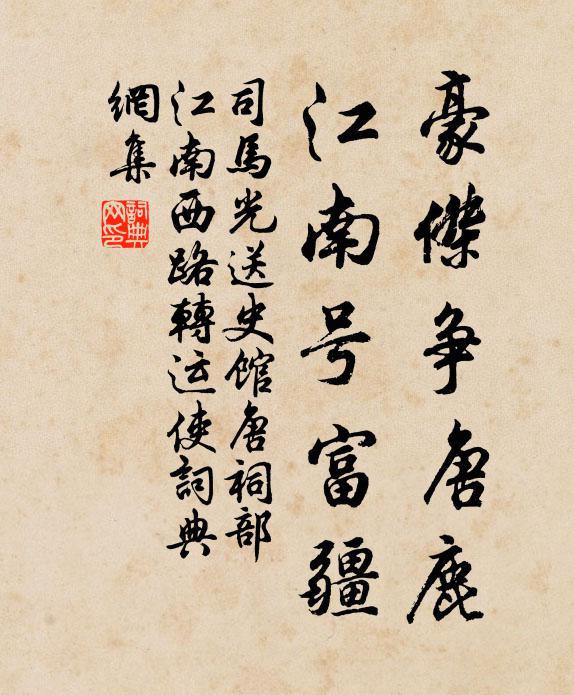 豪傑争唐鹿
江南号富疆
司馬光送史館唐祠部
江南西路轉运使詞典
網集
詞典
网印